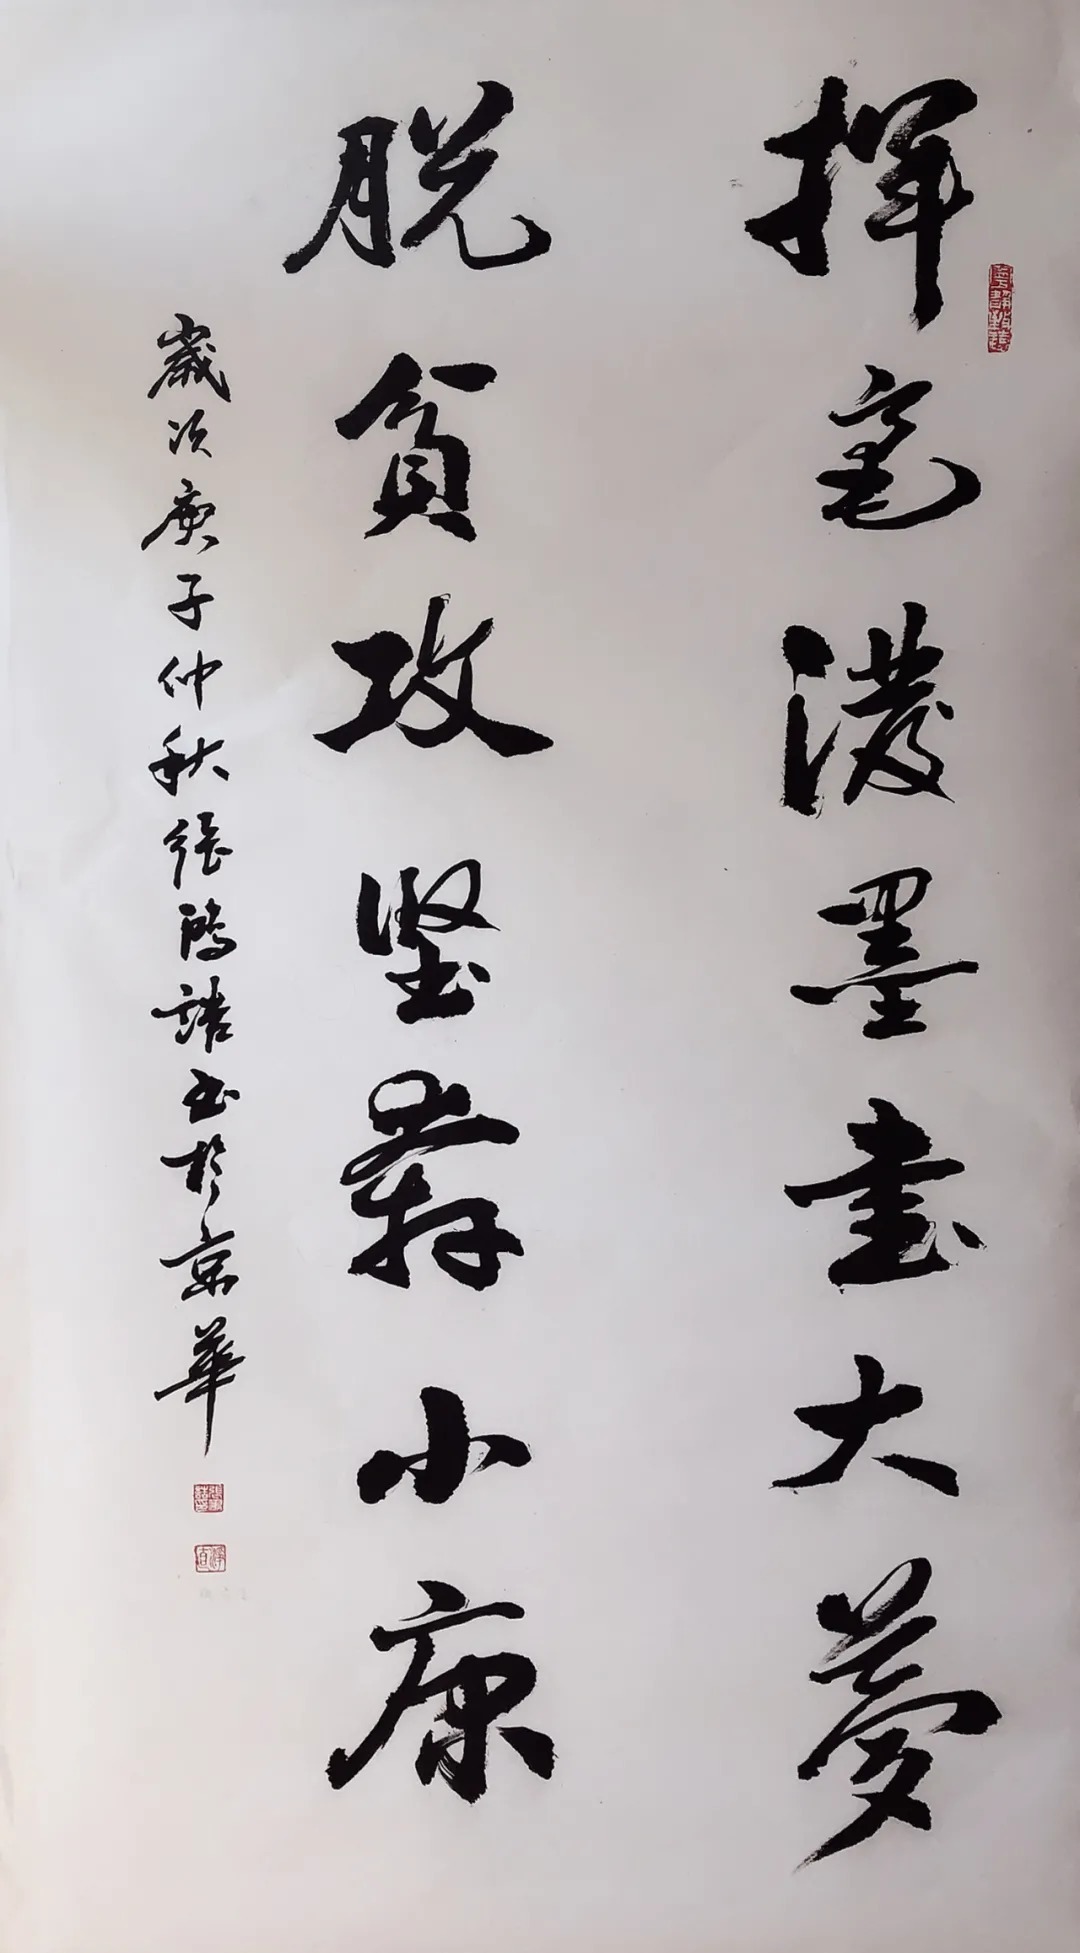 揮毫濃墨書大夢
脱貧攻堅舞小康
歲次庚子仲秋張鴻書於京華